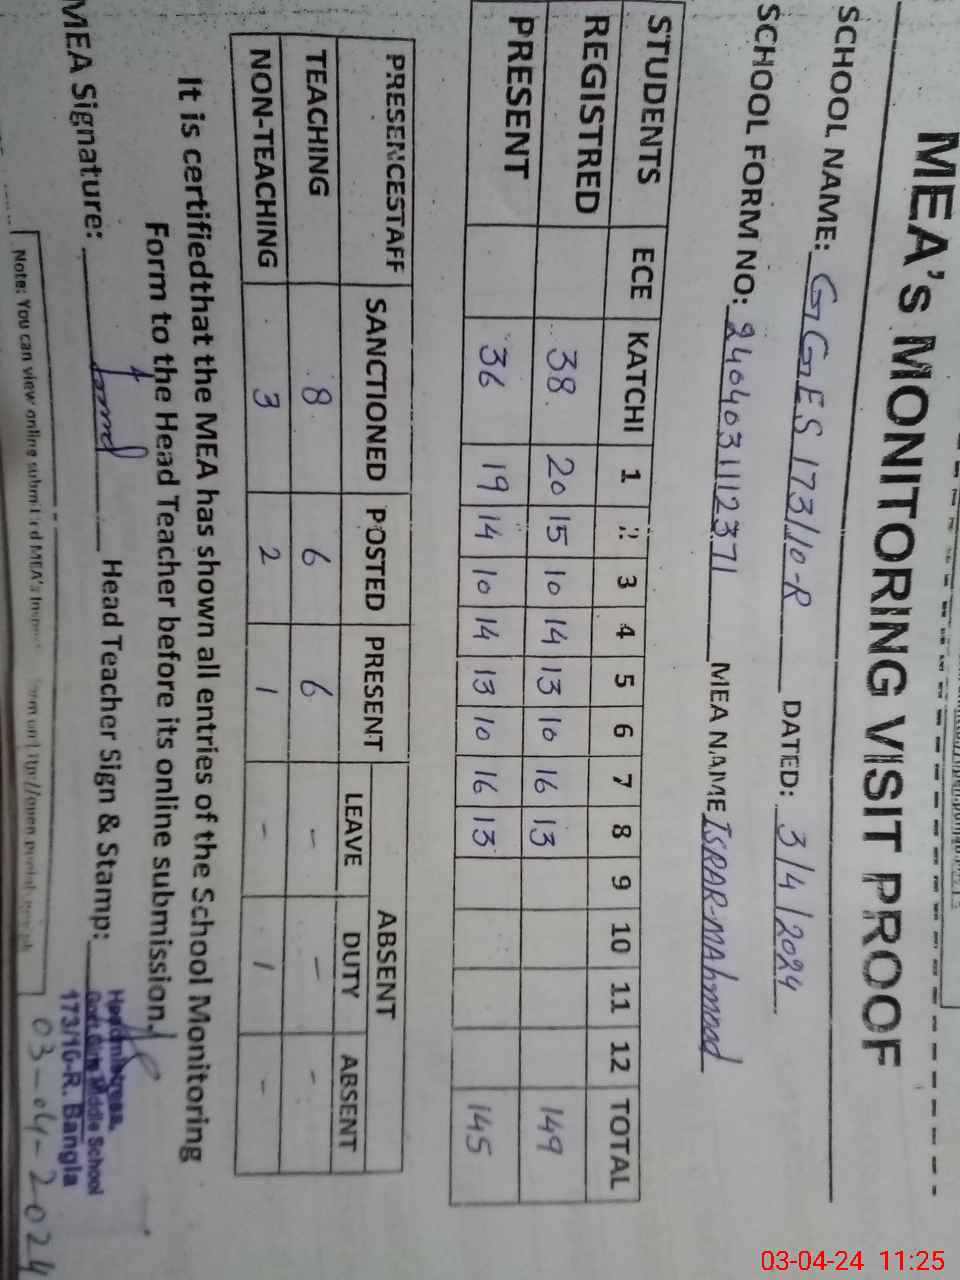 MEA's MONITORING VISIT PROOF
SCHOOL NAME: GGES 173/10-R DATED: 3/4/2024
SCHOOL FORM NO: 2404031112371 MEA NAME ISRAR-MAhmood
STUDENTS ECE KATCHI 1 2 3 4 5 6 7 8 9 10 11 12 TOTAL
REGISTRED 38 20 15 10 14 13 10 16 13 149
PRESENT 36 19 14 10 14 13 10 16 13 145
PRESENCESTAFF SANCTIONED POSTED PRESENT ABSENT
LEAVE DUTY ABSENT
TEACHING 8 6 6 - - -
NON-TEACHING 3 2 1 - 1 -
It is certifiedthat the MEA has shown all entries of the School Monitoring
Form to the Head Teacher before its online submission.
MEA Signature: Head Teacher Sign & Stamp:
Headmistress,
Govt. Girls Middle School
173/10-R. Bangla
03-04-2024
Note: You can view online submitted MEA's
03-04-24 11:25